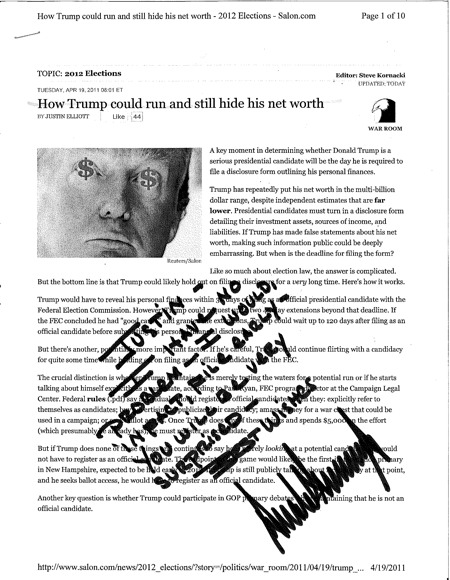 How Trump could run and still hide his net worth - 2012 Elections - Salon.com
Page 1 of 10
TOPIC: 2012 Elections
Editor: Steve Kornacki
UPDATED: TODAY
TUESDAY, APR 19, 2011 08:01 ET
How Trump could run and still hide his net worth
BY JUSTIN ELLIOTT
Like 44
WAR ROOM
$ $
Reuters/Salon
A key moment in determining whether Donald Trump is a
serious presidential candidate will be the day he is required to
file a disclosure form outlining his personal finances.
Trump has repeatedly put his net worth in the multi-billion
dollar range, despite independent estimates that are far
lower. Presidential candidates must turn in a disclosure form
detailing their investment assets, sources of income, and
liabilities. If Trump has made false statements about his net
worth, making such information public could be deeply
embarrassing. But when is the deadline for filing the form?
Like so much about election law, the answer is complicated.
But the bottom line is that Trump could likely hold out on filing disclosure for a very long time. Here's how it works.
Trump would have to reveal his personal finances within days of as official presidential candidate with the
Federal Election Commission. However, could request extensions beyond that deadline. If
the FEC concluded he had "good and granted extensions, could wait up to 120 days after filing as an
official candidate before personal financial disclosure
But there's another, more important factor: if he's careful, could continue flirting with a candidacy
for quite some time while on filing as official candidate with the FEC.
The crucial distinction is merely testing the waters for potential run or if he starts
talking about himself as according to FEC program director at the Campaign Legal
Center. Federal rules (.pdf) say register official candidates they: explicitly refer to
themselves as candidates; advertising publicize their candidacy; amass money for a war chest that could be
used in a campaign; or ballot Once Trump does of these things and spends $5,000 the effort
(which presumably already has), must
But if Trump does none of these things and continues to say he's merely looking at a potential candidacy would
not have to register as an official candidate. The game would likely be the first primary
in New Hampshire, expected to be held early Trump is still publicly at that point,
and he seeks ballot access, he would have to register as an official candidate.
Another key question is whether Trump could participate in GOP primary debates maintaining that he is not an
official candidate.
JUSTIN -
I HAVE NO
PROBLEM - I WOULD
FILE EARLY -
YOU WILL BE VERY
SURPRISED
BEST WISHES
http://www.salon.com/news/2012_elections/?story=/politics/war_room/2011/04/19/trump_...
4/19/2011